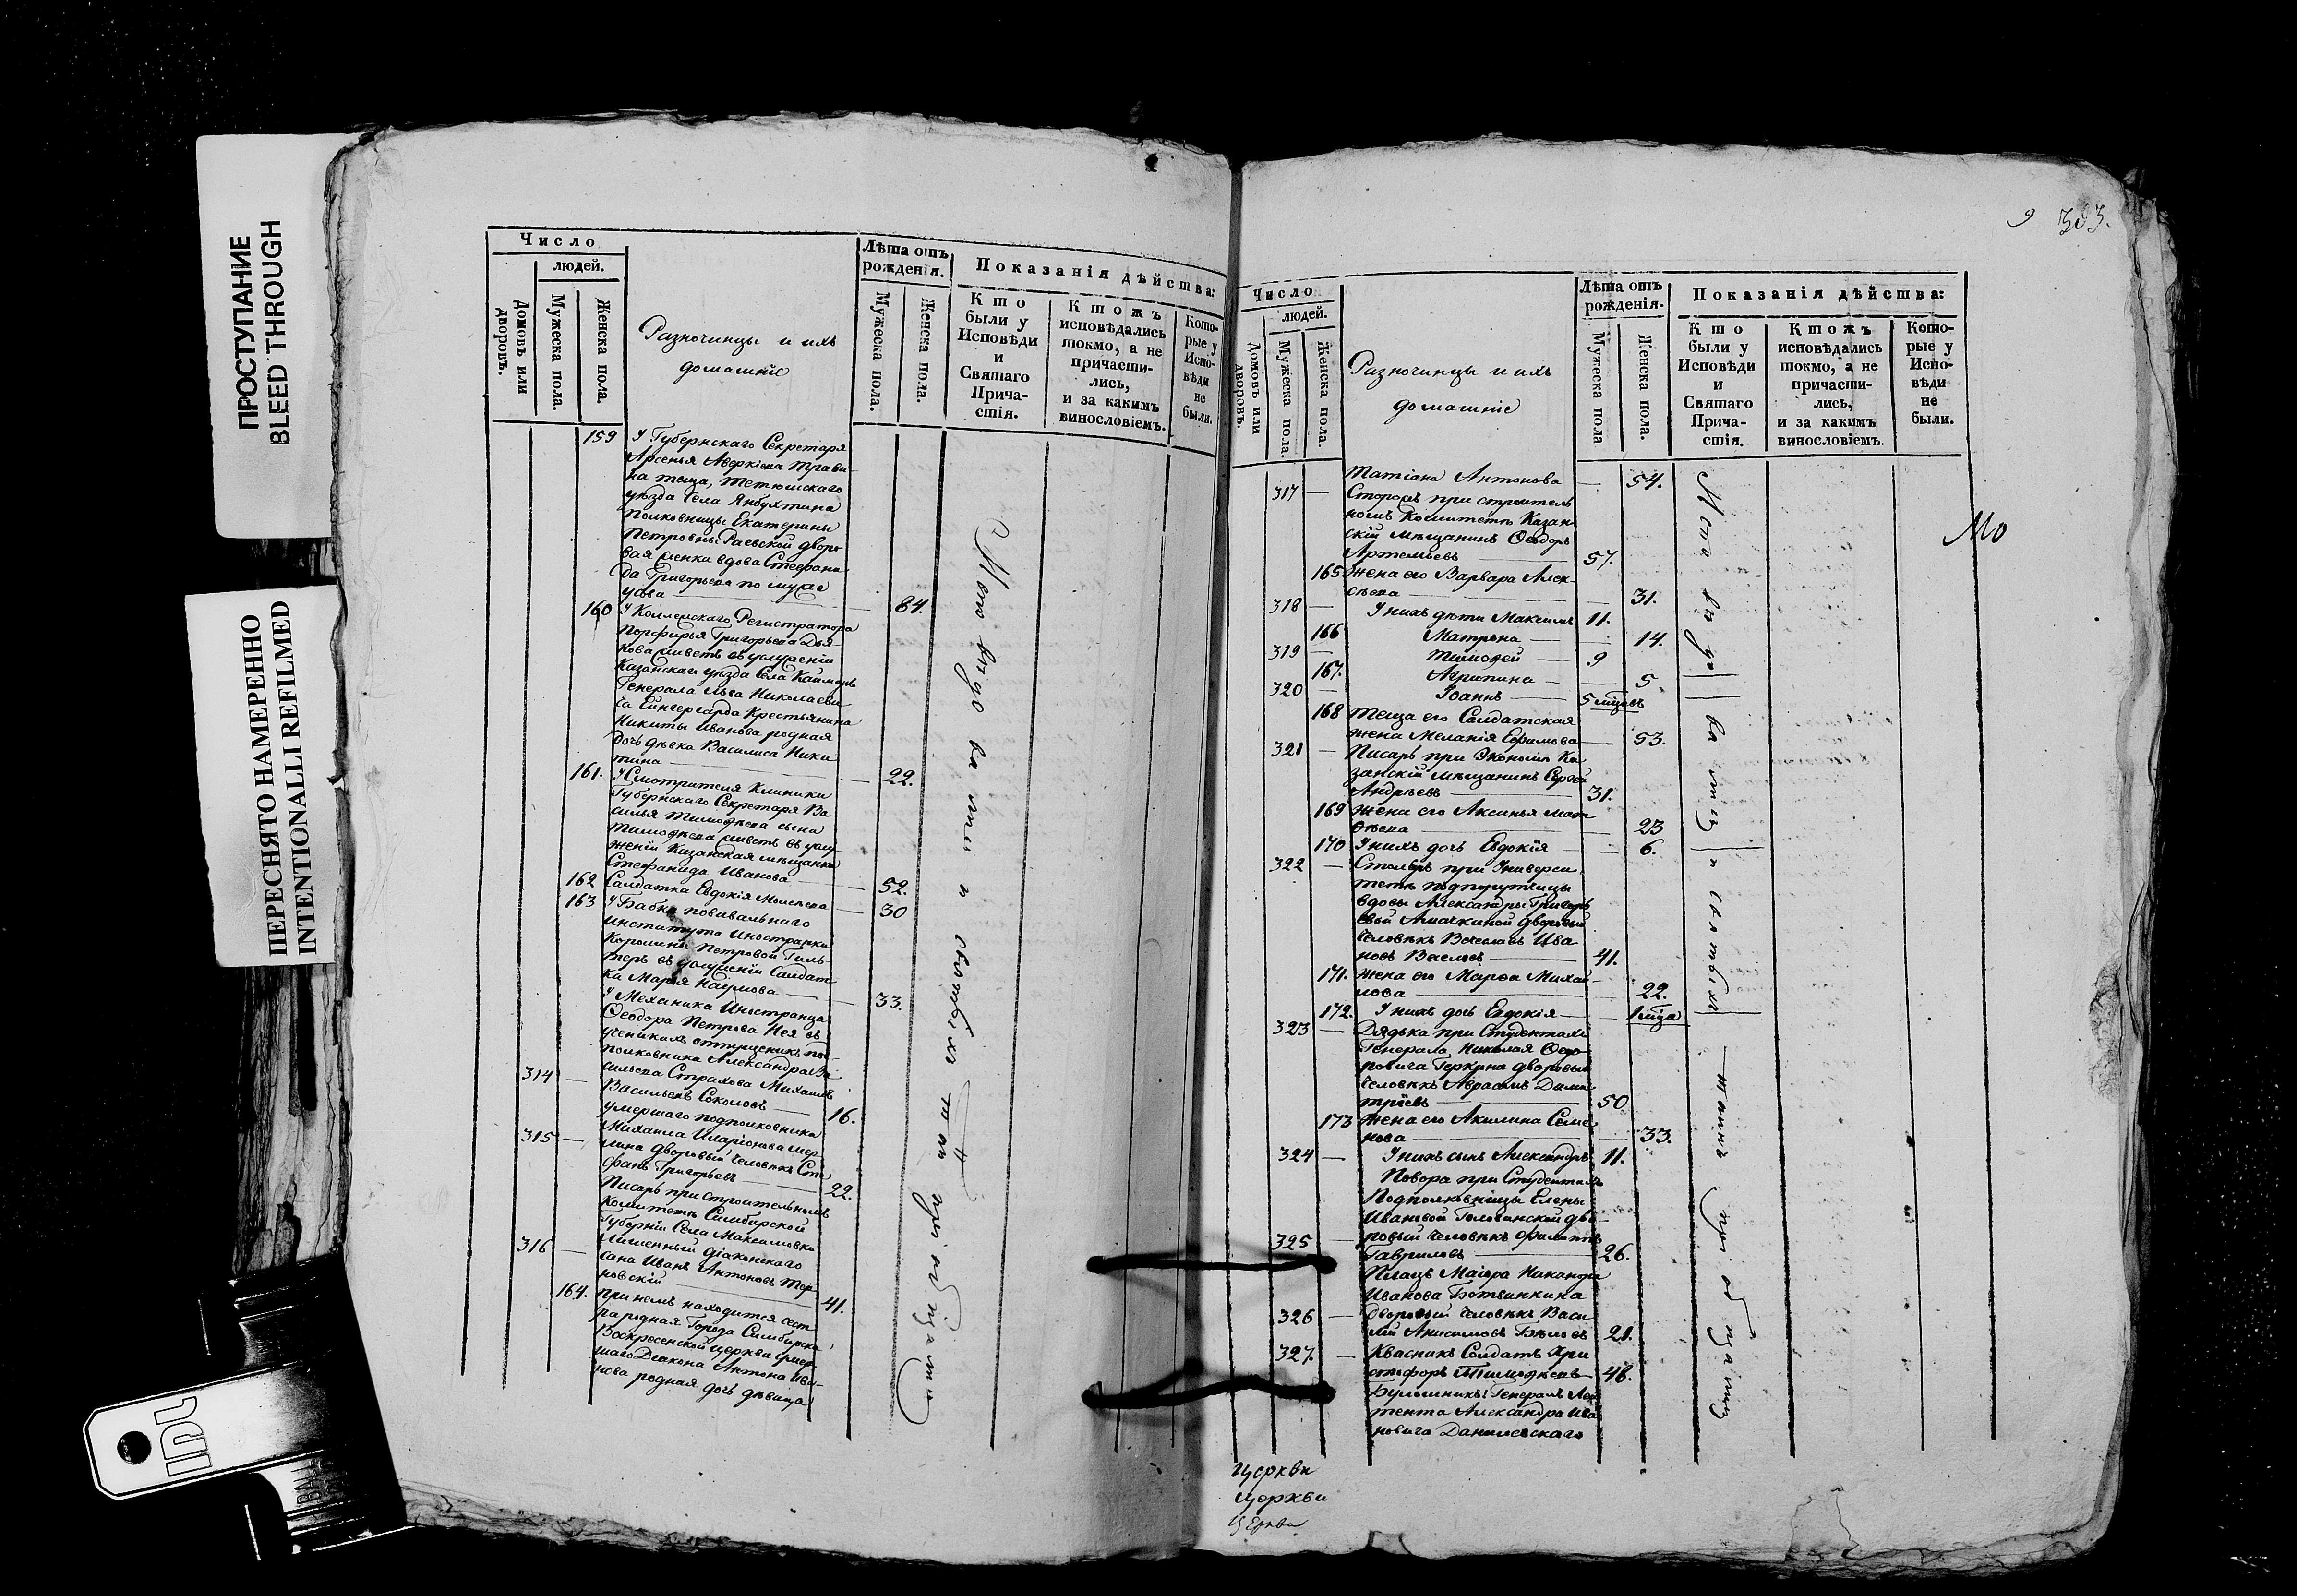 ПРОСТУПАНИЕ
BLEED THROUGH
ПЕРЕСНЯТО НАМЕРЕННО
INTENTIONALLI REFILMED
Число
людей.
Домовъ или дворовъ.
Мужеска пола.
Женска пола.
Разночинцы и ихъ
домашніе
Лѣта отъ
рожденія.
Мужеска пола.
Женска пола.
Показанія дѣйства:
Кто
были у
Исповѣди
и
Святаго
Прича-
стія.
Ктожъ
исповѣдались
токмо, а не
причасти-
лись,
и за какимъ
винословіемъ.
Кото-
рые у
Испо-
вѣди
не
были.
159 У Губернскаго Секретаря
Арсенья Аверкіева Трави-
на теща, Тетюшскаго
уѣзда Села Янбухтина
Полковницы Екатерины
Петровны Раевской дворо-
вая женка вдова Стефани-
да Григорьева по мужѣ
84.
160 У Коллежскаго Регистратора
Порфирья Григорьева Дья-
кова живетъ въ услуженіи
Казанскаго уѣзда Села Каймаръ
Генерала Льва Николаеви-
ча Енгергарда Крестьянина
Никиты Иванова родная
дочь дѣвка Василиса Ники
тина — 22.
161. У Смотрителя Клиники
Губернскаго Секретаря Ва
силья Тимофѣева сына
Тимофѣева живетъ въ услу-
женіи Казанская мѣщанка
Стефанида Иванова — 52.
162 Салдатка Евдокія Моисѣева — 30
163 У Бабки повивальнаго
Института Иностранки
Каролины Петровой Гиль-
теръ въ услуженіи Салдат-
ка Марья Наумова — 33.
У Механика Иностранца
Ѳеодора Петрова Нея въ
ученикахъ отпущенникъ под-
полковника Александра Ва
сильева Страхова Михаилъ
314 — Васильевъ Соколовъ — 16.
умершаго подполковника
315 — Михаила Иларіонова
дворовый человѣкъ Сте
фанъ Григорьевъ — 22.
Писарь при строительномъ
Комитетѣ Симбирской
Губерніи Села Максимовки
316 — лишенный діаконскаго
сана Иванъ Антоновъ Тер-
новскій — 41.
164. при немъ находится сест
ра родная Города Симбирска
Воскресенской церкви умер
шаго Діакона Антона Ива-
нова родная дочь дѣвица
9 303.
Число
людей.
Домовъ или дворовъ.
Мужеска пола.
Женска пола.
Разночинцы и ихъ
домашніе
Лѣта отъ
рожденія.
Мужеска пола
Женска пола.
Показанія дѣйства:
Кто
были у
Исповѣди
и
Святаго
Прича-
стія.
Ктожъ
исповѣдались
токмо, а не
причасти-
лись,
и за какимъ
винословіемъ.
Кото-
рые у
Испо-
вѣди
не
были.
Татіана Антонова — 54.
317 — Сторожъ при строитель
номъ Комитетѣ Казан-
скій мѣщанинъ Ѳеодоръ
Артемьевъ — 57.
165 Жена его Варвара Алек-
сѣева — 31.
318 — У нихъ дѣти Максимъ 11.
166 Матрена — 14.
319 — Тимофей — 9
167. Агрипина — 5
320 — Іоаннъ — 5 мѣцовъ
168 Теща его Салдатская
жена Меланія Ефимова — 53.
321 — Писарь при Экономѣ Ка
занскій мѣщанинъ Сергей
Андреевъ — 31.
169 Жена его Аксинья Мат
ѳѣева — 23
170 У нихъ дочь Евдокія — 6.
322 — Столяръ при Универси
тетѣ подпорутчицы
вдовы Александры Григорь
евой дворовый
человѣкъ Вячеславъ Ива
новъ — 41.
171. Жена его Марѳа Михай
лова — 22.
172. У нихъ дочь Евдокія — 1 мѣца
323 — Дядька при Студентахъ
Генерала Николая Ѳедо
ровича дворовый
человѣкъ Авраамъ Дими
тріевъ — 50
173 Жена его Акилина Семе
нова — 33.
324 — У нихъ сынъ Александръ 11.
Повора при Студентахъ
Подполковницы Елены
Ивановой дво-
325 — ровый человѣкъ Филиппъ
Гавриловъ — 26.
Плацъ Маіора Никанора
Иванова Ботвинкина
326 — дворовый человѣкъ Васи
лій Анисимовъ Бѣловъ 21.
327. — Квасникъ Солдатъ Хри
стофоръ Тимофѣевъ — 46.
Генералъ Лей
тенанта Александра Ива
новича Данилевскаго
Мо
церкви
церкви
церкви